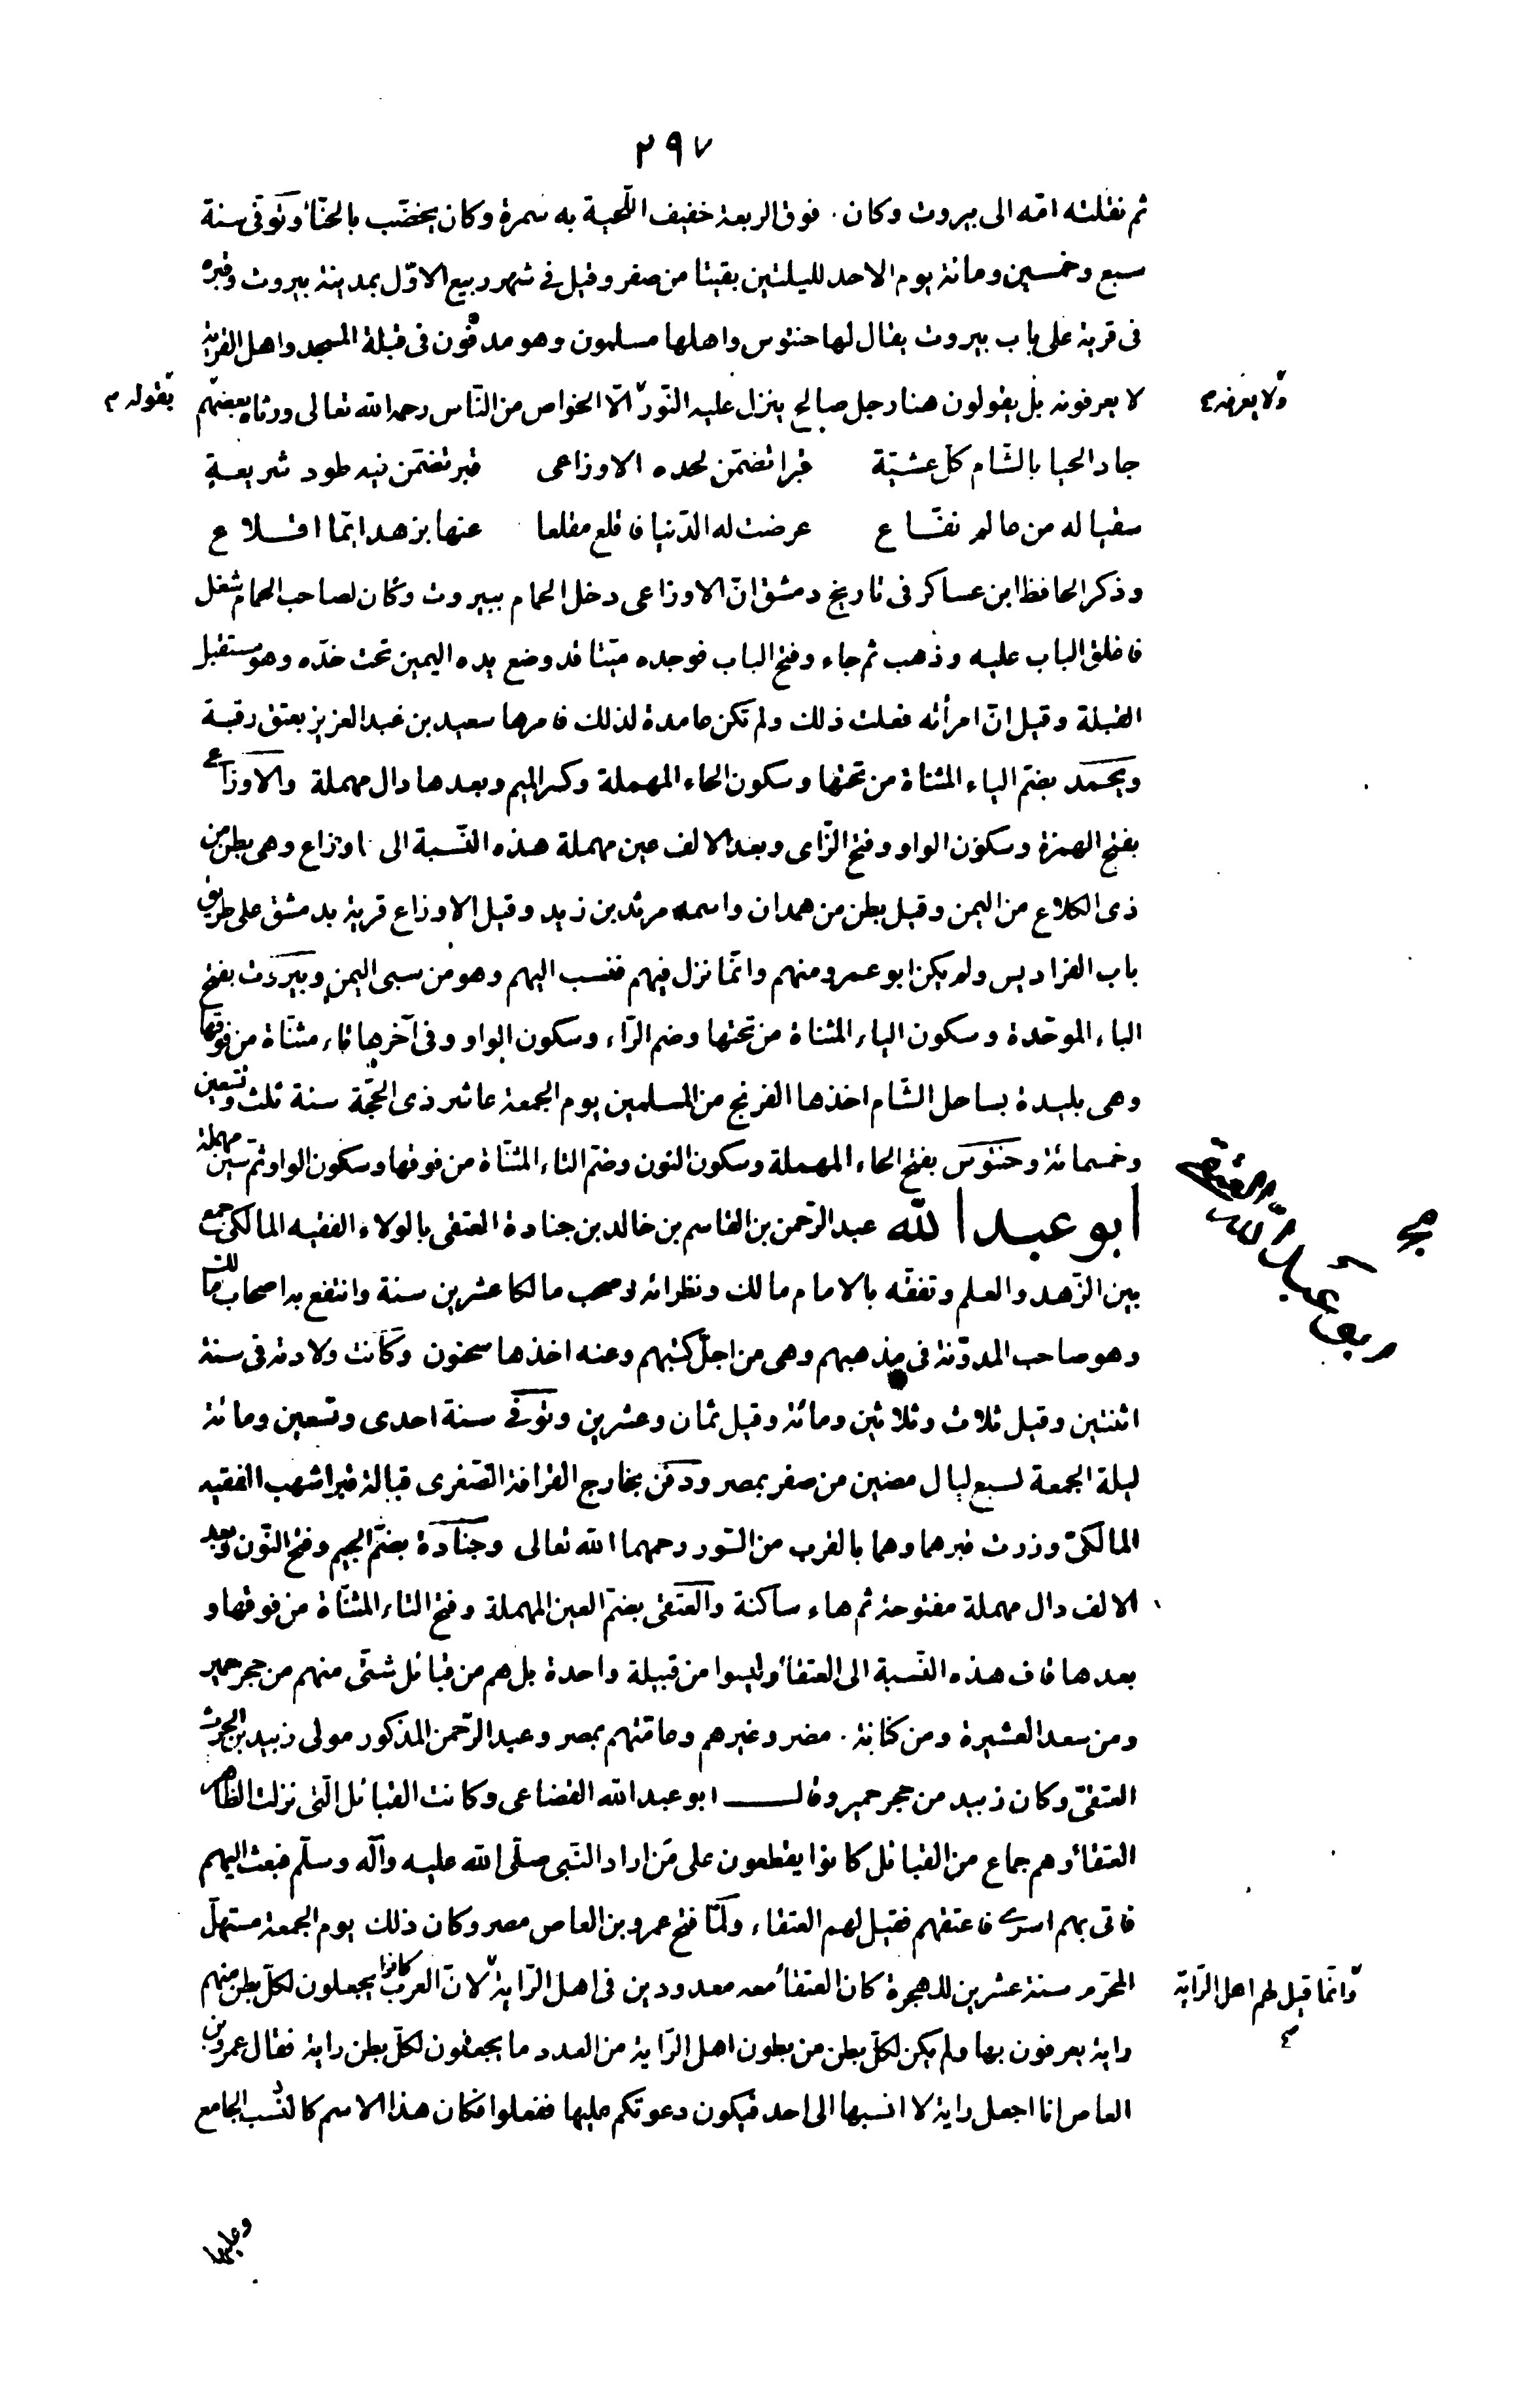 ٢٩٧
ثم نقلته امّه الى بيروت وكان فوق الربعة خفيف اللّحية به سمرة وكان يخضّب بالحنّاء وتوفى سنة
سبع وخمسين ومائة يوم الاحد لليلتين بقيتا من صفر وقيل فى شهر ربيع الاوّل بمدينة بيروت وقبره
فى قرية على باب بيروت يقال لها حنتوس واهلها مسلمون وهو مدفون فى قبلة المسجد واهل القرية
لا يعرفونه بل يقولون هنا رجل صالح ينزل عليه النّور الّا الخواص من النّاس رحمه الله تعالى ورثاه بعضهم
ولا يعرفه
بقوله
جاد الحيا بالشّام كلّ عشيّة قبرا تضمّن لحده الاوزاعى قبر تضمّن فيه طود شريعة
سقيا له من عالم نفّاع عرضت له الدّنيا فاقلع مقلعا عنها بزهد ايّما اقلاع
وذكر الحافظ ابن عساكر فى تاريخ دمشق انّ الاوزاعى دخل الحمام ببيروت وكان لصاحب الحمام شغل
فاغلق الباب عليه وذهب ثم جاء وفتح الباب فوجده ميّتا قد وضع يده اليمين تحت خدّه وهو مستقبل
القبلة وقيل انّ امرأته فعلت ذلك ولم تكن عامدة لذلك فامرها سعيد بن عبد العزيز بعتق رقبة
ويحمد بضمّ الياء المثناة من تحتها وسكون الحاء المهملة وكسر الميم وبعدها دال مهملة والاوزاعى
بفتح الهمزة وسكون الواو وفتح الزّاى وبعد الالف عين مهملة هذه النّسبة الى اوزاع وهى بطن من
ذى الكلاع من اليمن وقيل بطن من همدان واسمه مرثد بن زيد وقيل الاوزاع قرية بدمشق على طريق
باب الفراديس ولم يكن ابو عمرو منهم وانّما نزل فيهم فنسب اليهم وهو من سبى اليمن وبيروت بفتح
الباء الموحّدة وسكون الياء المثناة من تحتها وضم الرّاء وسكون الواو وفى آخرها تاء مثنّاة من فوقها
وهى بليدة بساحل الشّام اخذها الفرنج من المسلمين يوم الجمعة عاشر ذى الحجّة سنة ثلث وتسعين
وخمسمائة وحنتوس بفتح الحاء المهملة وسكون النون وضمّ التاء المثنّاة من فوقها وسكون الواو ثمّ سين مهملة
ابو عبد الله عبد الرّحمن بن القاسم بن خالد بن جنادة العتقى بالولاء الفقيه المالكى جمع
بين الزّهد والعلم وتفقّه بالامام مالك ونظرائه وصحب مالكا عشرين سنة وانتفع به اصحاب مالك
وهو صاحب المدوّنة فى مذهبهم وهى من اجلّ كتبهم وعنه اخذها سحنون وكانت ولادته فى سنة
اثنتين وقيل ثلاث وثلاثين ومائة وقيل ثمان وعشرين وتوفى سنة احدى وتسعين ومائة
ليلة الجمعة لسبع ليال مضين من صفر بمصر ودفن بخارج القرافة الصّغرى قبالة قبر اشهب الفقيه
المالكىّ وزرت قبرهما وهما بالقرب من السّور رحمهما الله تعالى وجنادة بضمّ الجيم وفتح النّون وبعد
الالف دال مهملة مفتوحة ثم هاء ساكنة والعتقى بضمّ العين المهملة وفتح التاء المثنّاة من فوقها و
بعدها قاف هذه النّسبة الى العتقاء وليسوا من قبيلة واحدة بل هم من قبائل شتّى منهم من حجر حمير
ومن سعد العشيرة ومن كنانة مضر وغيرهم وعامّتهم بمصر وعبد الرّحمن المذكور مولى زبيد بن الحرث
العتقىّ وكان زبيد من حجر حمير وقال ابو عبد الله القضاعى وكانت القبائل الّتى نزلت الظاهر
العتقاء وهم جماع من القبائل كانوا يقطعون على من اراد النّبى صلّى الله عليه وآله وسلّم فبعث اليهم
فاتى بهم اسرى فاعتقهم فقيل لهم العتقاء ولمّا فتح عمرو بن العاص مصر وكان ذلك يوم الجمعة مستهلّ
المحرّم سنة عشرين للهجرة كان العتقاء معه معدودين فى اهل الرّاية لانّ العرب كانوا يجعلون لكلّ بطن منهم
وانّما قيل لهم اهل الرّاية
راية يعرفون بها ولم يكن لكلّ بطن من بطون اهل الرّاية من العدد ما يجعلون لكلّ بطن راية فقال عمرو بن
العاص انا اجعل راية لا انسبها الى احد فيكون دعوتكم عليها ففعلوا فكان هذا الاسم كالنّسب الجامع
وعليها